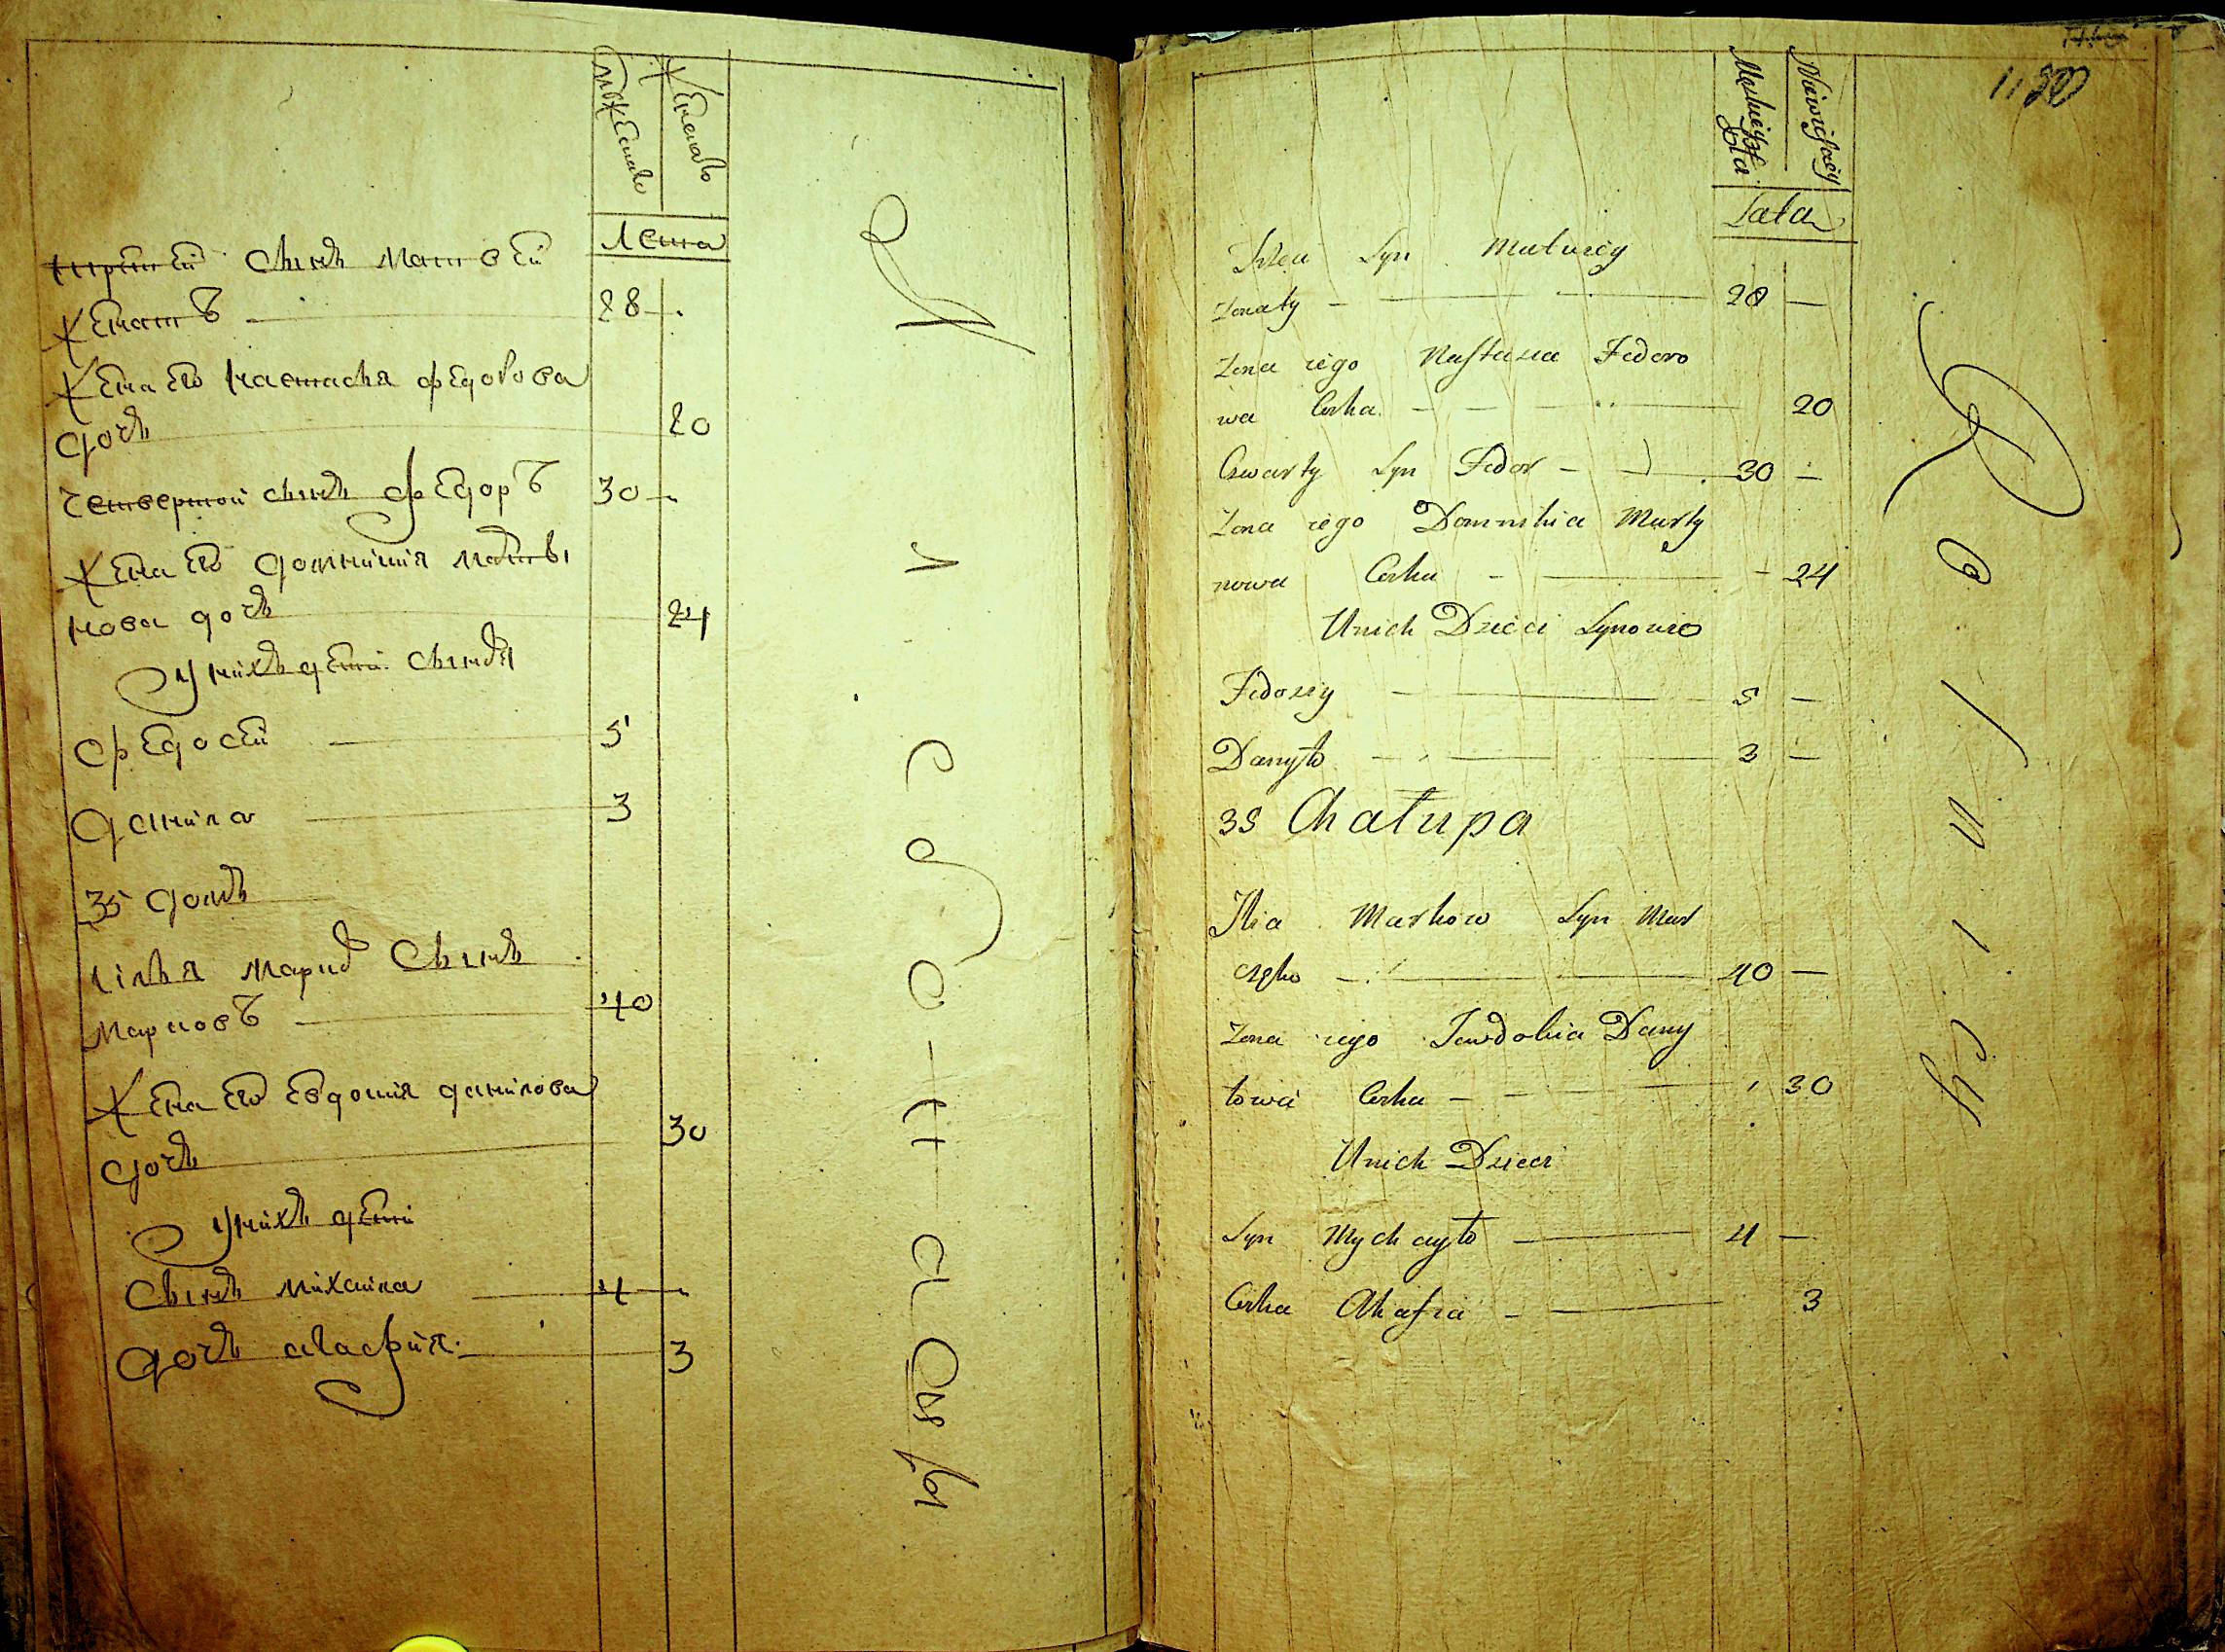 мужеска
женска
Лета
третей сынъ матвей
женатъ 28
жена его настасья федорова
дочь 20
четвертой сынъ федоръ 30
жена его домникия марты
нова дочь 24
У нихъ дети сыновя
федосей 5
данила 3
35 домъ
илья марков сынъ
марковъ 40
жена его евдокия данилова
дочь 30
У нихъ дети
сынъ михаила 4
дочь агафия 3
Męskiey
Niewieściey
Lata
Syn Matwiey
Zonaty 28
Zona iego Nastazia Fedoro
wa Corka 20
Czwarty Syn Fedor 30
Zona iego Domnikia Marty
nowa Corka 24
Unich Dzieci Synowie
Fedosiy 5
Danyło 3
35 Chałupa
Ilia Markow Syn Mar
częko 40
Zona iego Jewdokia Dany
łowa Corka 30
Unich Dzieci
Syn Mychayło 4
Corka Ahafia 3